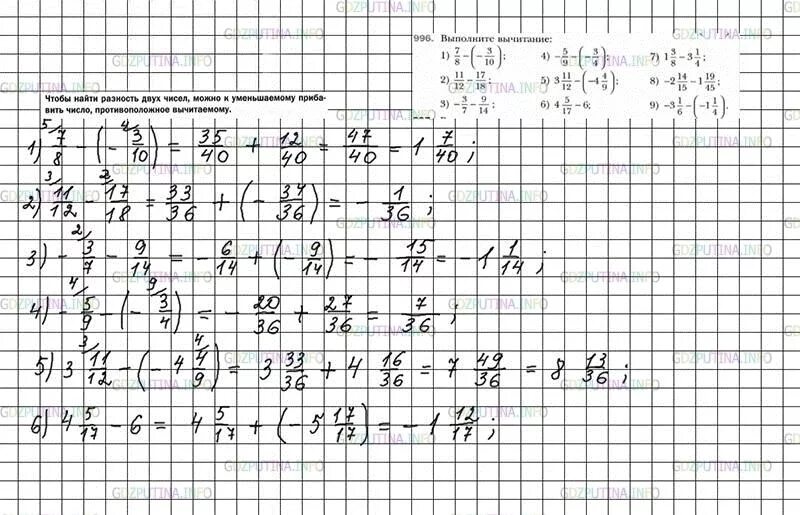 GDZPUTINA.INFO GDZPUTINA.INFO GDZPUTINA.INFO
996. Выполните вычитание:
1) 7/8 − (− 3/10); 4) − 5/9 − (− 3/4); 7) 1 3/8 − 3 1/4;
2) 11/12 − 17/18; 5) 3 11/12 − (−4 4/9); 8) −2 14/15 − 1 19/45;
3) − 3/7 − 9/14; 6) 4 5/17 − 6; 9) −3 1/6 − (−1 1/4).
Чтобы найти разность двух чисел, можно к уменьшаемому приба-
вить число, противоположное вычитаемому.
1) 5/ 7/8 − (− 4/ 3/10) = 35/40 + 12/40 = 47/40 = 1 7/40;
2) 3/ 11/12 − 2/ 17/18 = 33/36 + (− 34/36) = − 1/36;
3) − 2/ 3/7 − 9/14 = − 6/14 + (− 9/14) = − 15/14 = −1 1/14;
4) − 4/ 5/9 − (− 9/ 3/4) = − 20/36 + 27/36 = 7/36;
5) 3 3/ 11/12 − (−4 4/ 4/9) = 3 33/36 + 4 16/36 = 7 49/36 = 8 13/36;
6) 4 5/17 − 6 = 4 5/17 + (−5 17/17) = −1 12/17;
GDZPUTINA.INFO GDZPUTINA.INFO GDZPUTINA.INFO